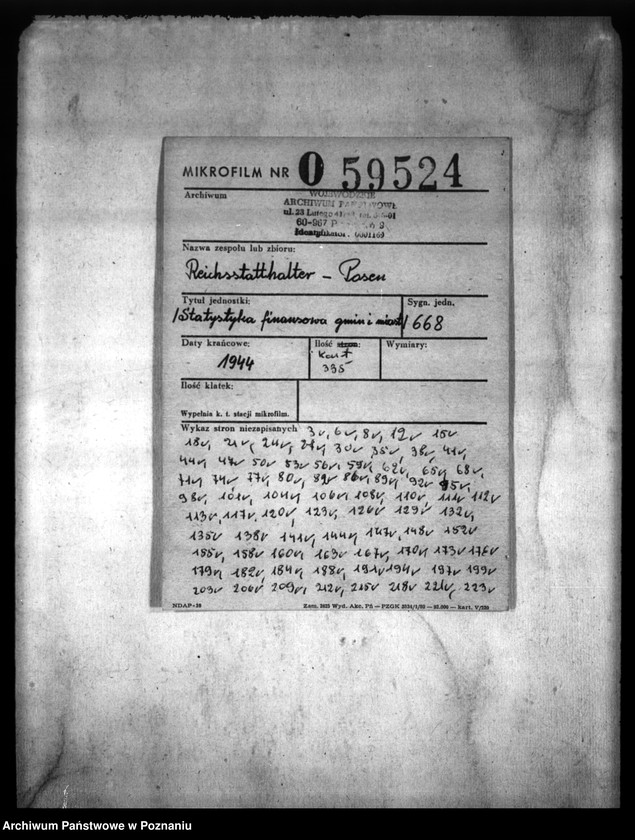 MIKROFILM NR 0 59524
Archiwum
WOJEWÓDZKIE
ARCHIWUM PAŃSTWOWE
ul. 23 Lutego
60-967 P
Identyfikator: 0001169
Nazwa zespołu lub zbioru:
Reichsstatthalter – Posen
Tytuł jednostki: Sygn. jedn.
/Statystyka finansowa gmin i miast/ 668
Daty krańcowe: Ilość stron: Wymiary:
1944 kart
395
Ilość klatek:
Wypełnia k. t. stacji mikrofilm.
Wykaz stron niezapisanych 3v, 6v, 8v, 12v 15v
18v, 21v, 24v, 27v, 30v 35v, 38v, 41v,
44v, 47v 50v 53v 56v, 59v, 62v, 65v, 68v,
71v, 74v 77v, 80v, 83v 86v, 89v, 92v 95v,
98v, 101v, 104v, 106v, 108v, 110v, 111v, 112v
113v, 117v, 120v, 123v, 126v 129v 132v,
135v 138v 141v, 144v, 147v, 148v 152v
155v, 158v 160v, 163v 167v, 170v, 173v 176v
179v, 182v, 184v, 188v, 191v, 194v, 197v 199v
203v 206v 209v, 212v, 215v 218v 221v, 223v
NDAP-39 Zam. 2625 Wyd. Akc. PS — PZGK
Archiwum Państwowe w Poznaniu